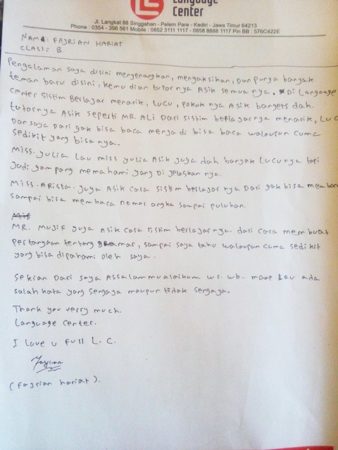 Language
Center
Jl. Langkat 88 Singgahan - Pelem Pare - Kediri - Jawa Timur 64213
Phone : 0354 - 396 561 Mobile : 0852 3111 1117 - 0858 8888 1117 Pin BB : 576C422E
NAMA : FAJRIAN HARIAT
CLASS : B
Pengalaman saya disini menyenangkan, mengasikan, dan punya banyak
teman baru disini. kemudian tutornya Asik semua nya. Di Language
center sistim Berlajar menarik, Lucu, pokok nya Asik bangets dah.
tutornya Asik seperti MR. ALI Dari sistim berlajarnya menarik, Luc
Dan saya dari gak bisa baca menjadi bisa baca walaupun cuma
sedikit yang bisa nya.
Miss. yulia Lau miss yulia Asik juga dah banyak Lucu nya tapi
Jadi gampang memahami yang di jelaskan nya.
Miss. Arista. juga Asik cara sistim berlajar nya Dari gak bisa memba
sampai bisa membaca nomer angka sampai puluhan.
MR. Mujib juga Asik cara sistim berlajar nya. dari cara membuat
pertanyaan tentang gramar, sampai saya tahu walaupun cuma sedikit
yang bisa dipahami oleh saya.
Sekian Dari saya Assalammualaikum ws. wb. maaf kau ada
salah kata yang sengaja maupun tidak sengaja.
Thank you verry much.
Language center.
I Love u full L.C.
(Fajrian hariat).